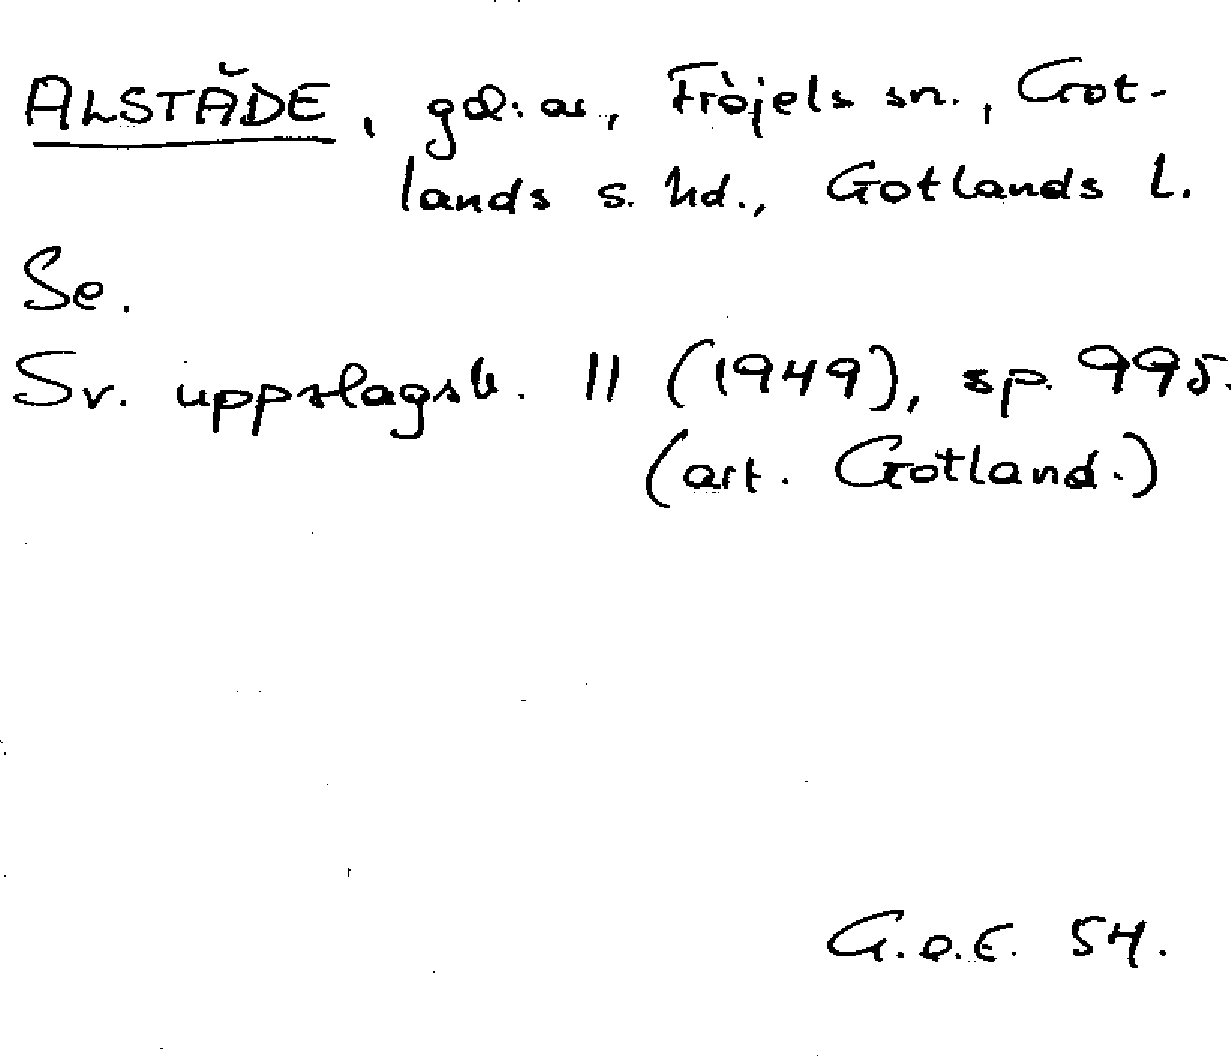 ALSTÄDE, gd:ar, Fröjels sn., Got-
lands s. hd., Gotlands l.
Se.
Sv. uppslagsb. 11 (1949), sp. 995.
(art. Gotland.)
G.o.E. 54.